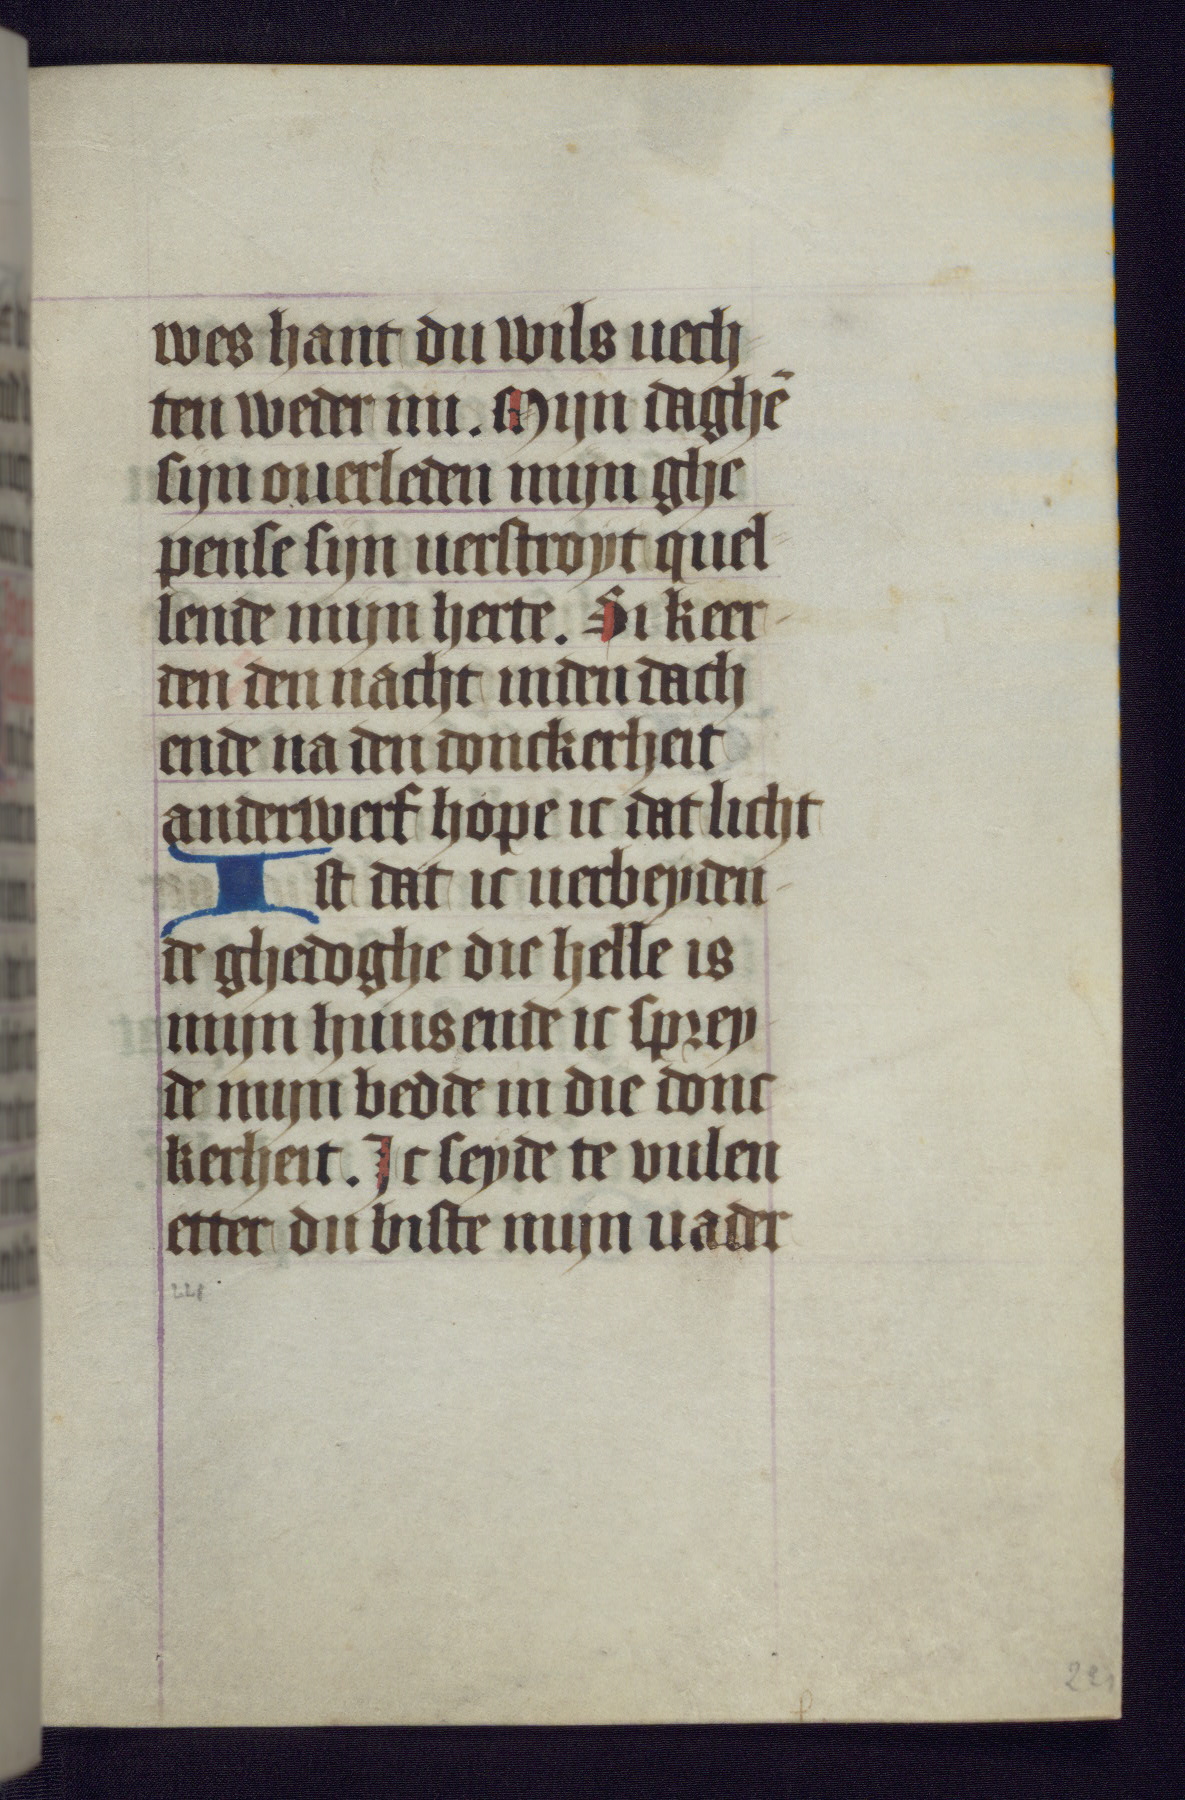 wes hant du wils uech
ten weder mi. Mijn daghē
sijn ouerleden mijn ghe
pense sijn uerstroyt quel
lende mijn herte. Si keer
den den nacht inden dach
ende na den donckerheit
anderwerf hope ic dat licht
Ist dat ic uerbeyden
de ghedoghe die helle is
mijn huus ende ic sprey
de mijn bedde in die donc
kerheit. Ic seyde te vulen
etter du biste mijn uader
228
221